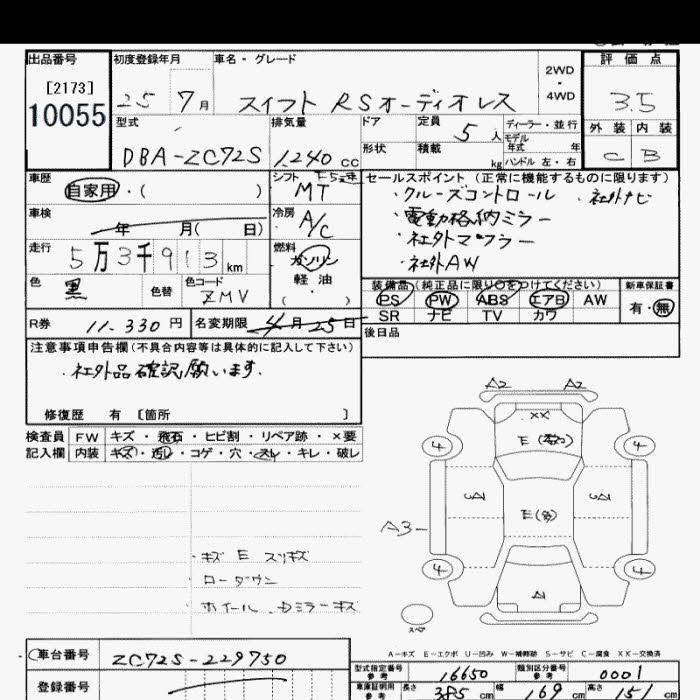 出品番号 初度登録年月 車名・グレード 2WD・4WD 評価点
[2173]
10055 25 7月 スイフト RSオーディオレス 3.5
型式 排気量 ドア 定員 5人 ディーラー・並行 外装 内装
モデル年式 年
DBA-ZC72S 1,240cc 形状 積載 kg ハンドル 左・右 C B
車歴 シフト F5速 セールスポイント (正常に機能するものに限ります)
自家用・( ) MT ・クルーズコントロール ・社外ナビ
車検 冷房 ・電動格納ミラー
年 月( 日) A/C ・社外マフラー
走行 5万3千913km 燃料 ガソリン ・社外AW
色 色替 色コード 軽油 装備品(純正品に限り○をつけてください) 新車保証書
黒 ZMV ( ) PS PW ABS エアB AW 有・無
R券 11,330円 名変期限 4月25日 SR ナビ TV カワ
注意事項申告欄(不具合内容等は具体的に記入して下さい) 後日品
・社外品確認願います.
修復歴 有 [箇所 ]
検査員 FW キズ・飛石・ヒビ割・リペア跡・×要
記入欄 内装 キズ・汚レ・コゲ・穴・スレ・キレ・破レ
A2 A2
XX
4 4
A3
・キズ E スリキズ
ローダウン
ホイール.Dミラーキズ
4 4
スペア
A-キズ E-エクボ U-凹み W-補修跡 S-サビ C-腐食 XX-交換済
車台番号 ZC72S-229750
型式指定番号 参考 16650 類別区分番号 参考 0001
登録番号
車庫証明用 参考 長さ 385cm 幅 169cm 高さ 151cm